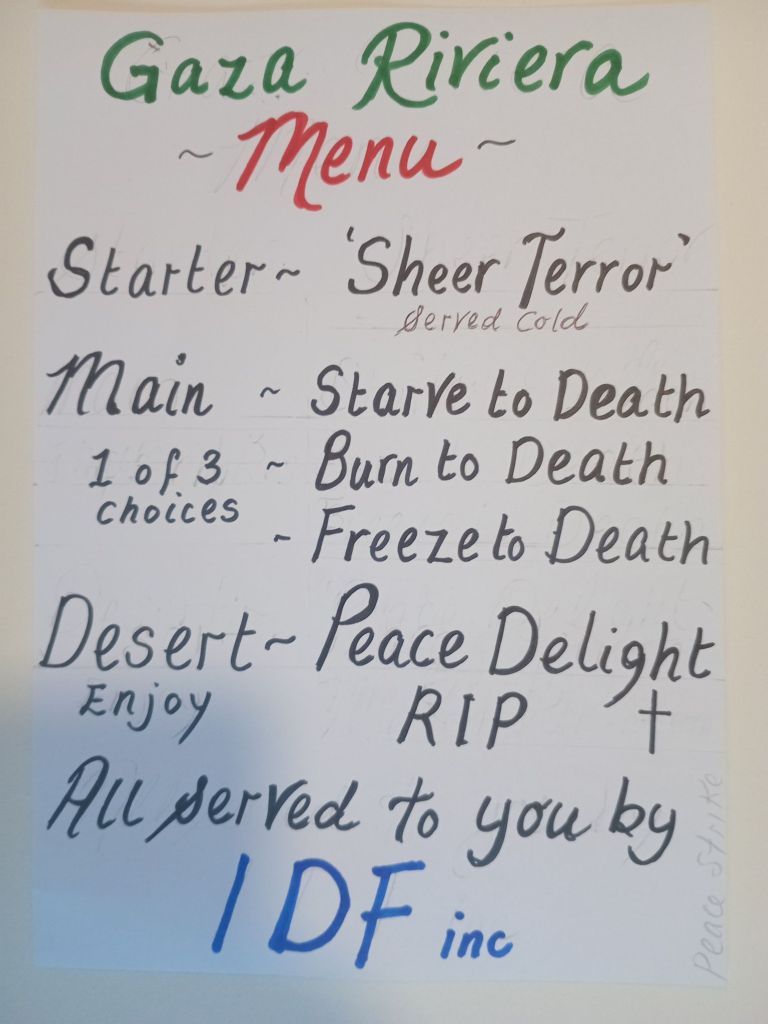 Gaza Riviera
~ Menu ~
Starter ~ 'Sheer Terror'
Served Cold
Main ~ Starve to Death
1 of 3 ~ Burn to Death
choices
~ Freeze to Death
Desert ~ Peace Delight
Enjoy RIP †
All served to you by
IDF inc
Peace Strike